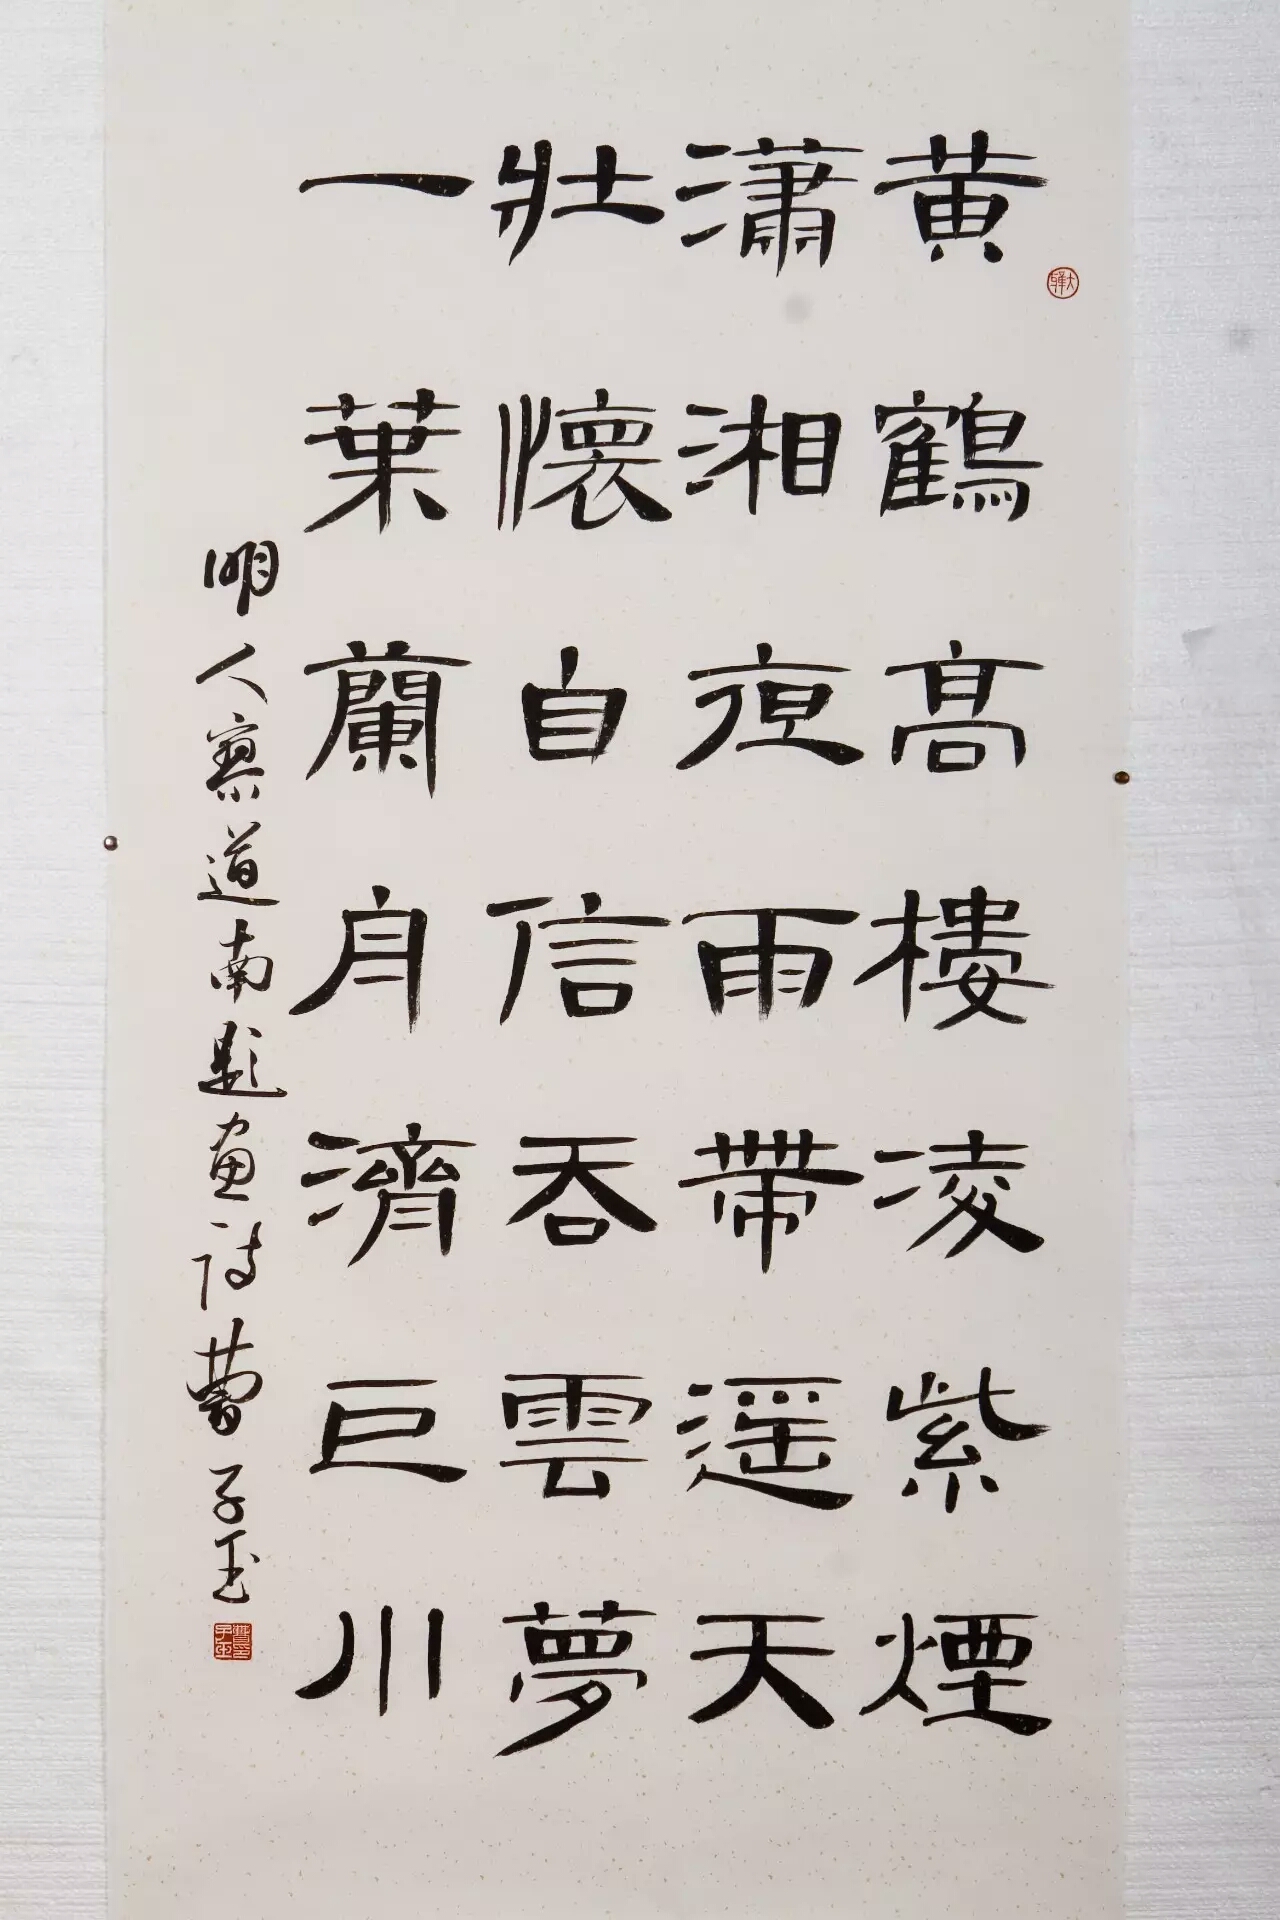 黄鶴高樓凌紫煙
瀟湘亱雨帶遥天
壯懷自信吞雲夢
一葉蘭舟濟巨川
明人道南題画诗曹子玉